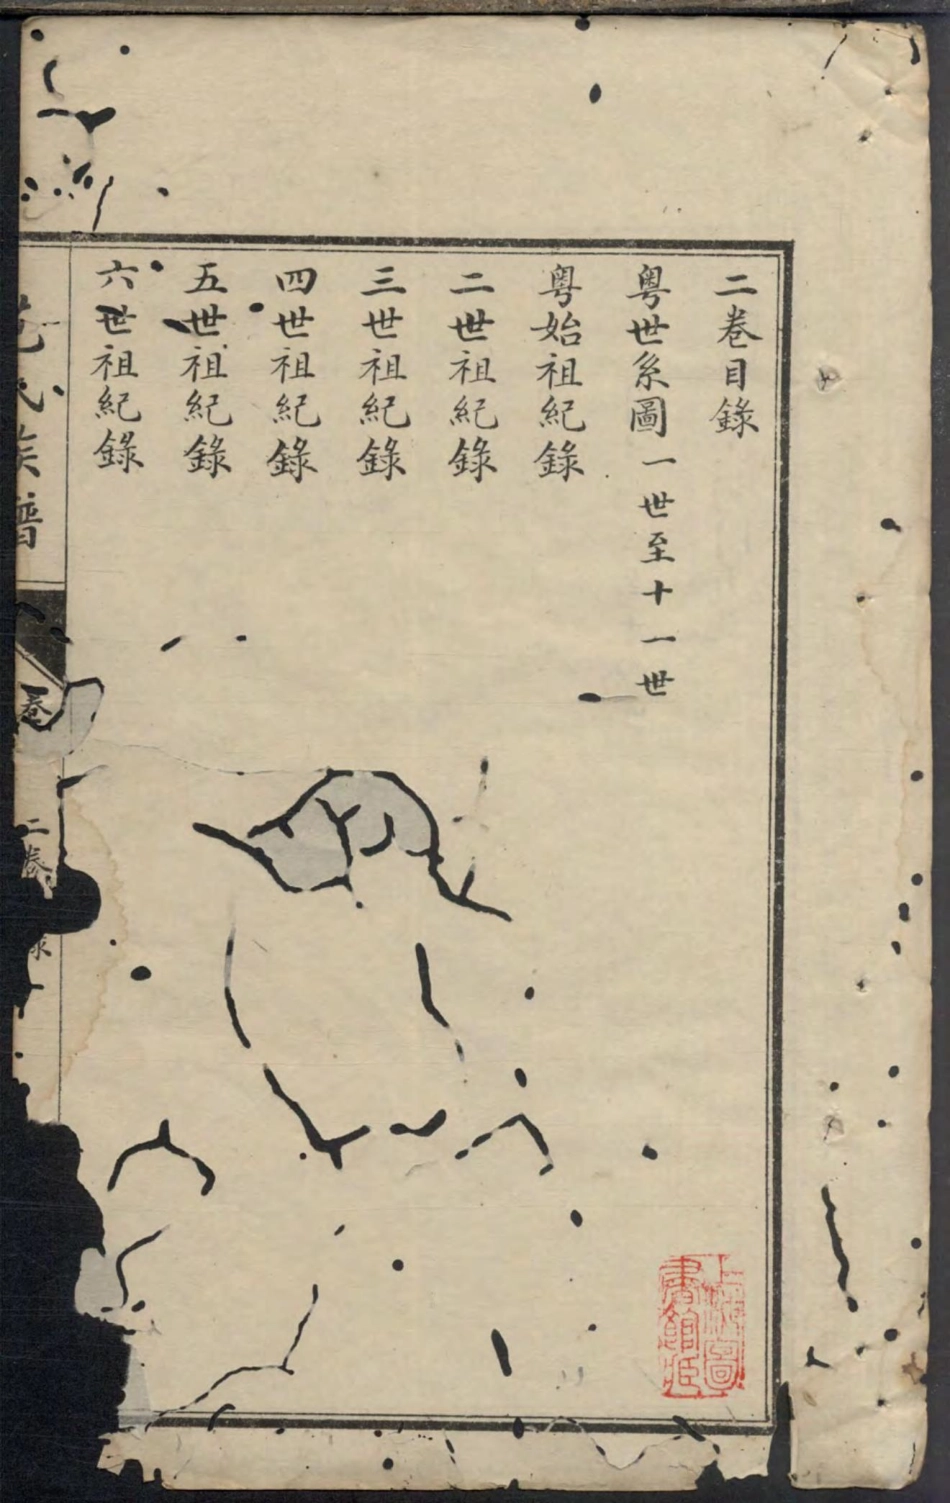 二卷目錄
粤世系圖一世至十一世
粤始祖紀錄
二世祖紀錄
三世祖紀錄
四世祖紀錄
五世祖紀錄
六世祖紀錄
氏族譜
卷
二卷
上海圖書館藏